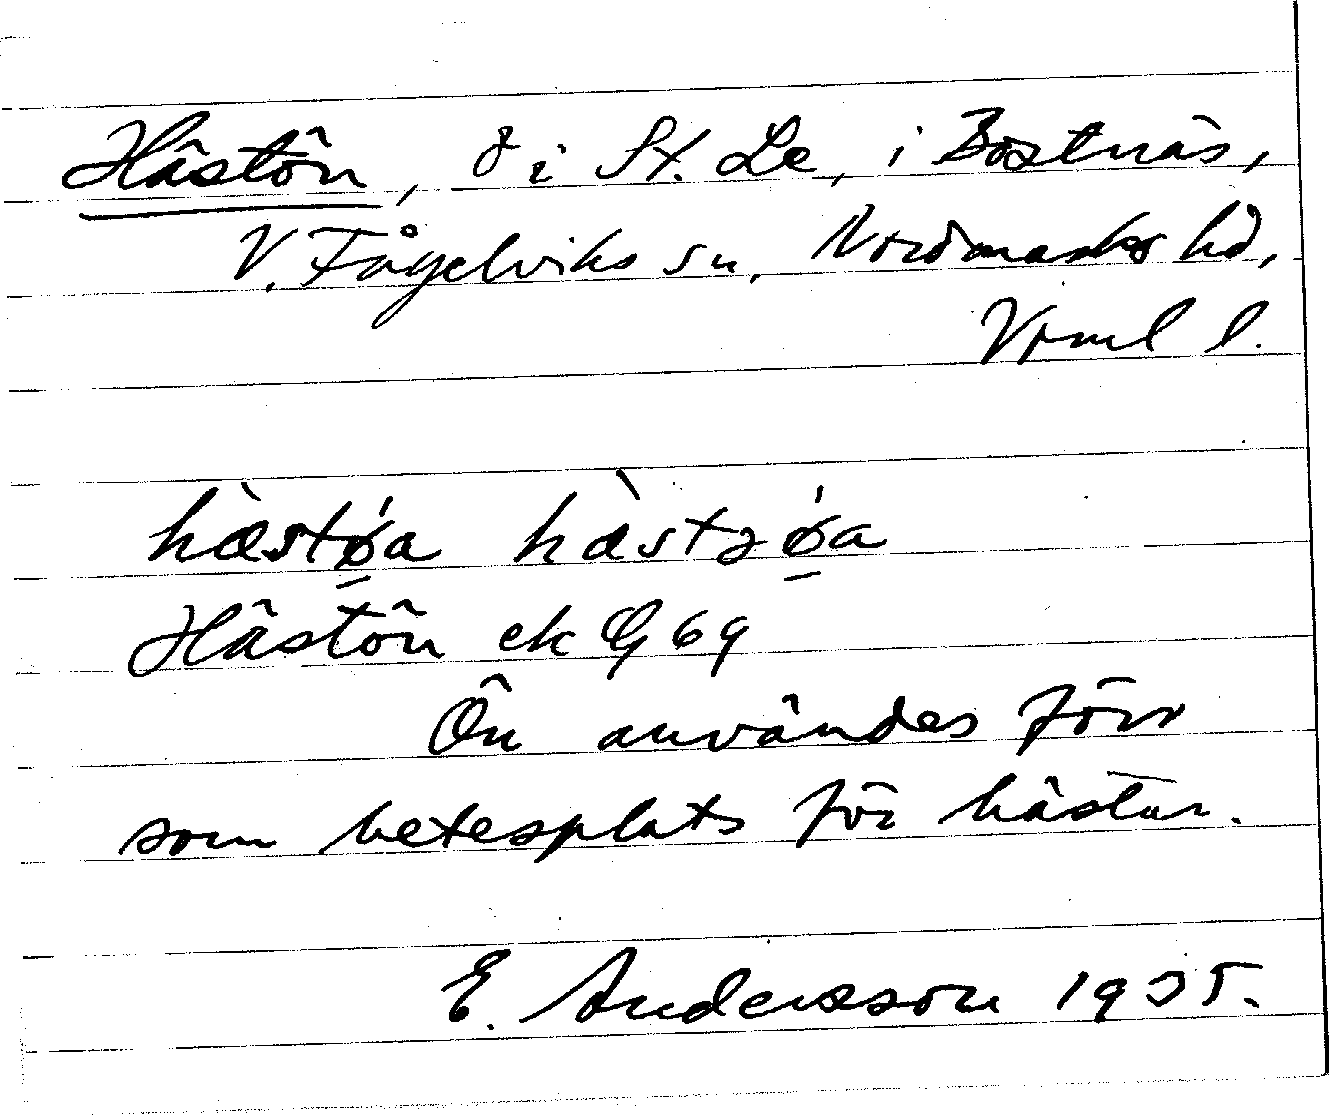 Hästön, ö i St. Le, i Bostnäs,
V. Fågelviks sn, Nordmarks hd,
Vrml l.
hæ̀stǿ̱a hæ̀stǿ̱a
Hästön ek G 69
Ön användes förr
som betesplats för hästar.
E. Andersson 1935.